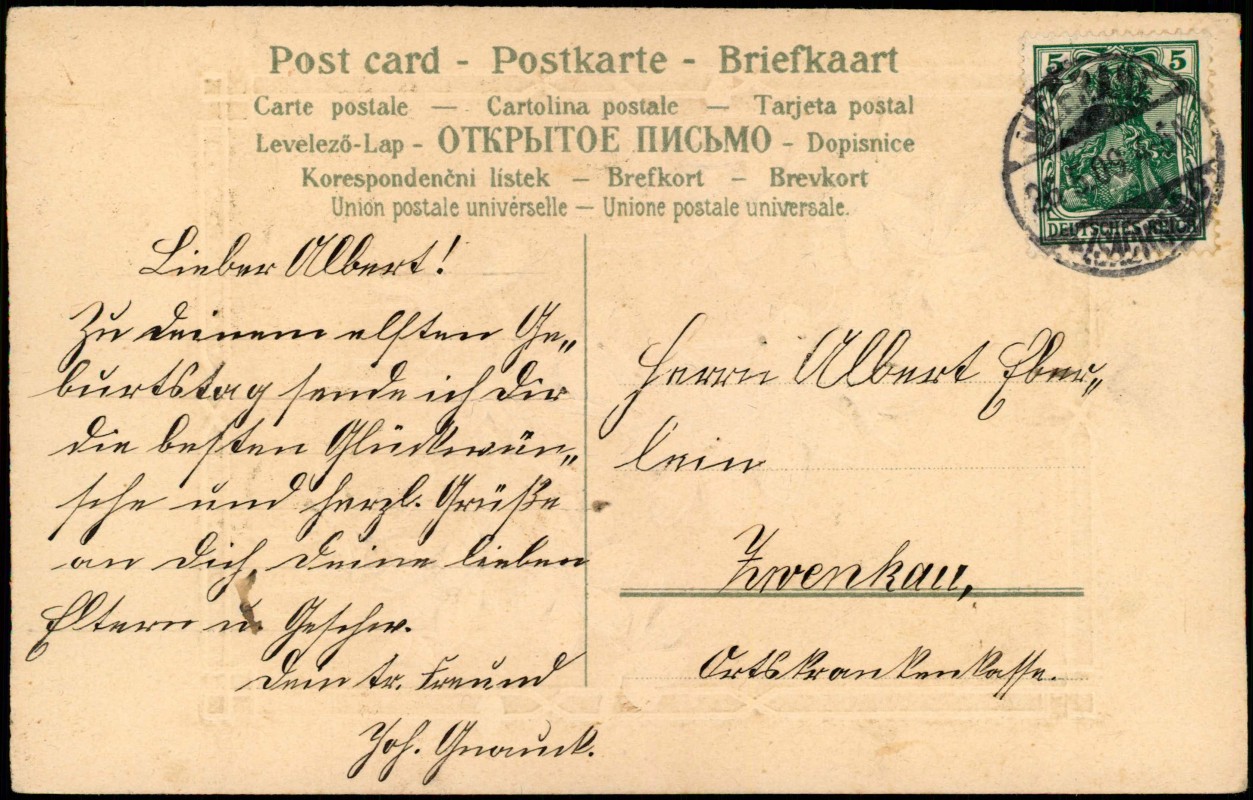 Post card - Postkarte - Briefkaart
Carte postale — Cartolina postale — Tarjeta postal
Levelező-Lap - ОТКРЫТОЕ ПИСЬМО - Dopisnice
Korespondenčni lístek — Brefkort — Brevkort
Union postale universelle — Unione postale universale.
5 5
DEUTSCHES REICH
26.5.09
Lieber Albert!
Zu deinem elften Ge„
burtstag sende ich Dir
die besten Glückwün„
sche und herzl. Grüße
an Dich, deine lieben
Eltern u. Geschw.
Dein tr. Freund
Joh. Gnauck.
Herrn Albert Eber„
lein
Zwenkau,
Ortskrankenkasse.